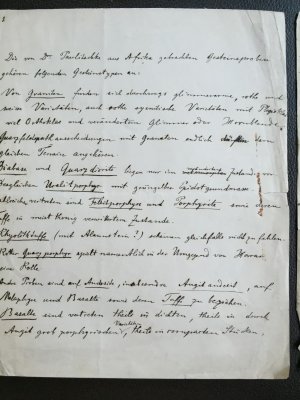 Die von Dr Paulitschke aus Afrika gebrachten Gesteinsproben
gehören folgenden Gesteinstypen an:
Von Graniten finden sich glimmerarme, rothe und
weisse Varietäten, auch rothe syenitische Varietäten mit
viel Orthoklas und verändertem Glimmer oder Hornblende.
Quarzfeldspathausscheidungen mit Granaten endlich dürften dem
gleichen Terrain angehören.
Diabase und Quarzdiorite liegen nur im Zustande vor
Uralitporphyr mit grüngelber Epidotgrundmasse.
vertreten sind Felsitporphyre und Porphyrite sowie deren
Tuffe in meist wenig Zustande.
Rhyolithtuffe (mit Alaunstein?) scheinen gleichfalls nicht zu fehlen.
Rother Quarzporphyr spielt namentlich in der Umgegend von Harrar
eine Rolle
Andere Proben sind auf Andesite, insbesondere Augitandesit, auf
Melaphyre und Basalte sowie deren Tuffe zu beziehen.
Basalte sind vertreten theils in dichten, theils in durch
Augit grob porphyrischen Varietäten, theils in Stücken.